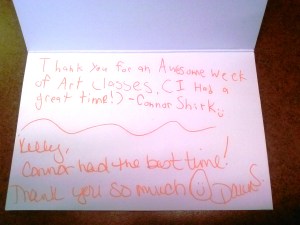 Thank you for an Awesome week
of Art classes. (I Had a
great time!) - Connor Shirk
Kelley,
Connor had the best time!
Thank you so much